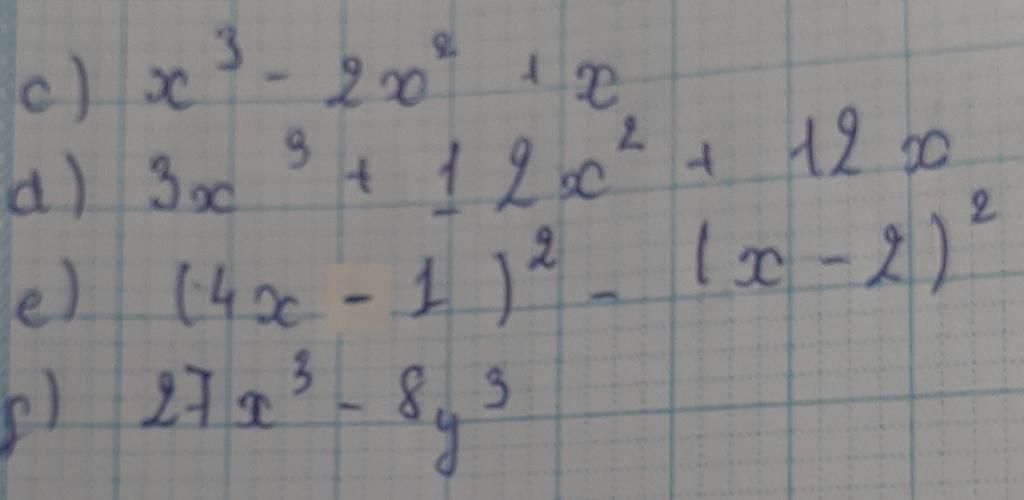 c) x³ - 2x² + x
d) 3x³ + 12x² + 12x
e) (4x - 1)² - (x - 2)²
f) 27x³ - 8y³